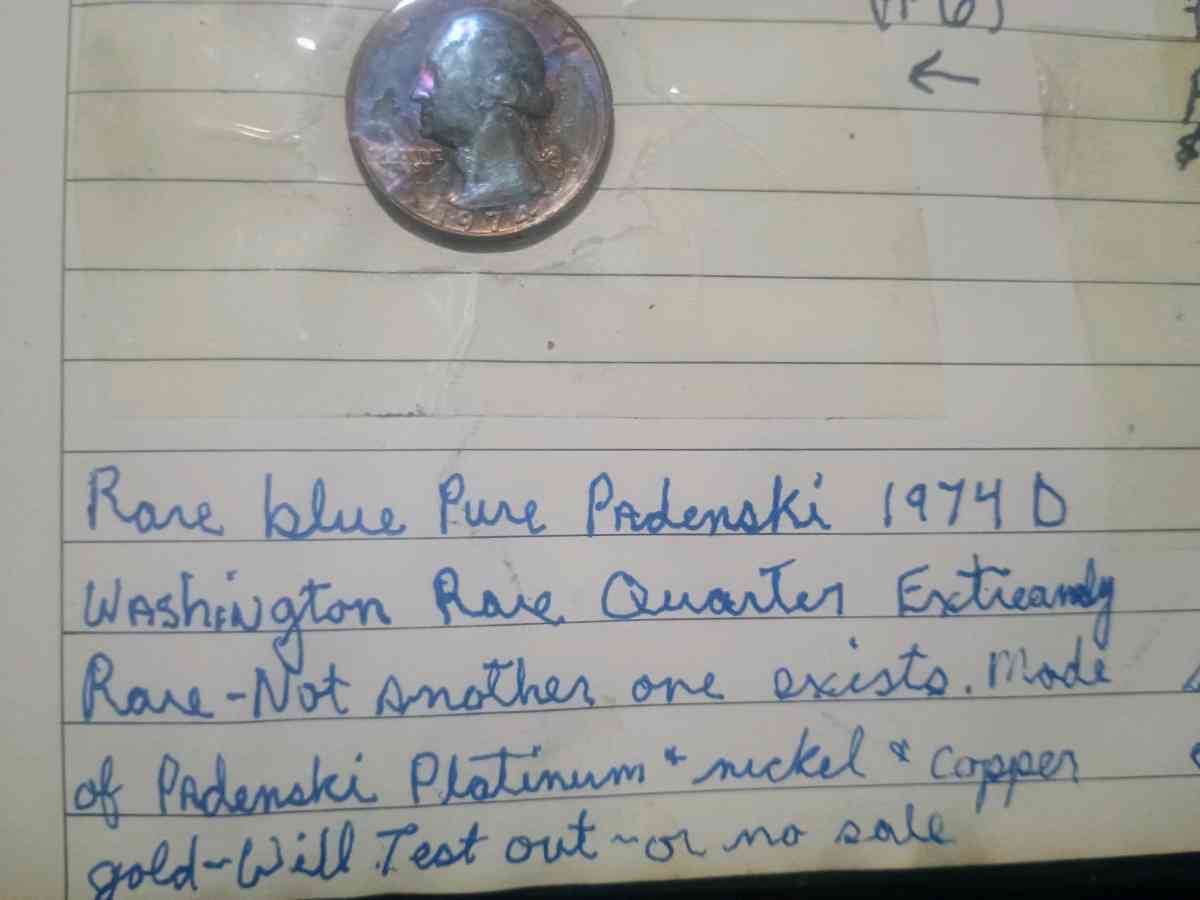 1974
Rare blue Pure PAdenski 1974 D
WAshiNgton Rare Quarter Extreamly
Rare - Not another one exists. Made
of PAdenski Platinum & nickel & copper
gold - Will Test out - or no sale